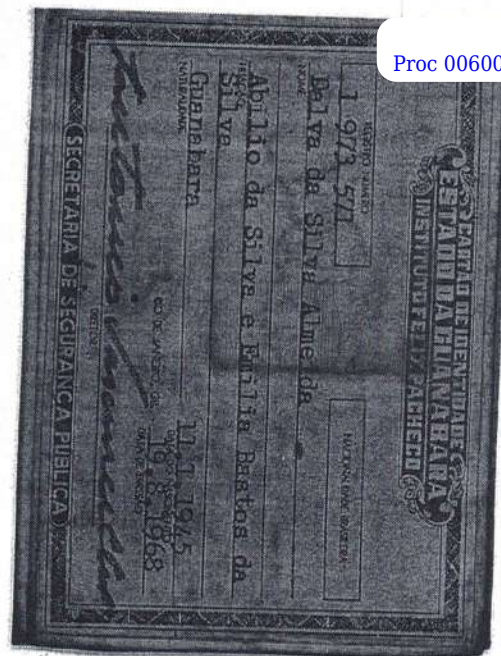 Proc 00600
CARTÃO DE IDENTIDADE
ESTADO DA GUANABARA
INSTITUTO FELIX PACHECO
REGISTRO NÚMERO
1 973 571
NACIONALIDADE BRASILEIRA
NOME
Dalva da Silva Almeida
FILIAÇÃO
Abilio da Silva e Emilia Bastos da
Silva
NATURALIDADE
Guanabara
11 1 1945
RIO DE JANEIRO, GB.
1968
DIRETOR
SECRETARIA DE SEGURANÇA PÚBLICA